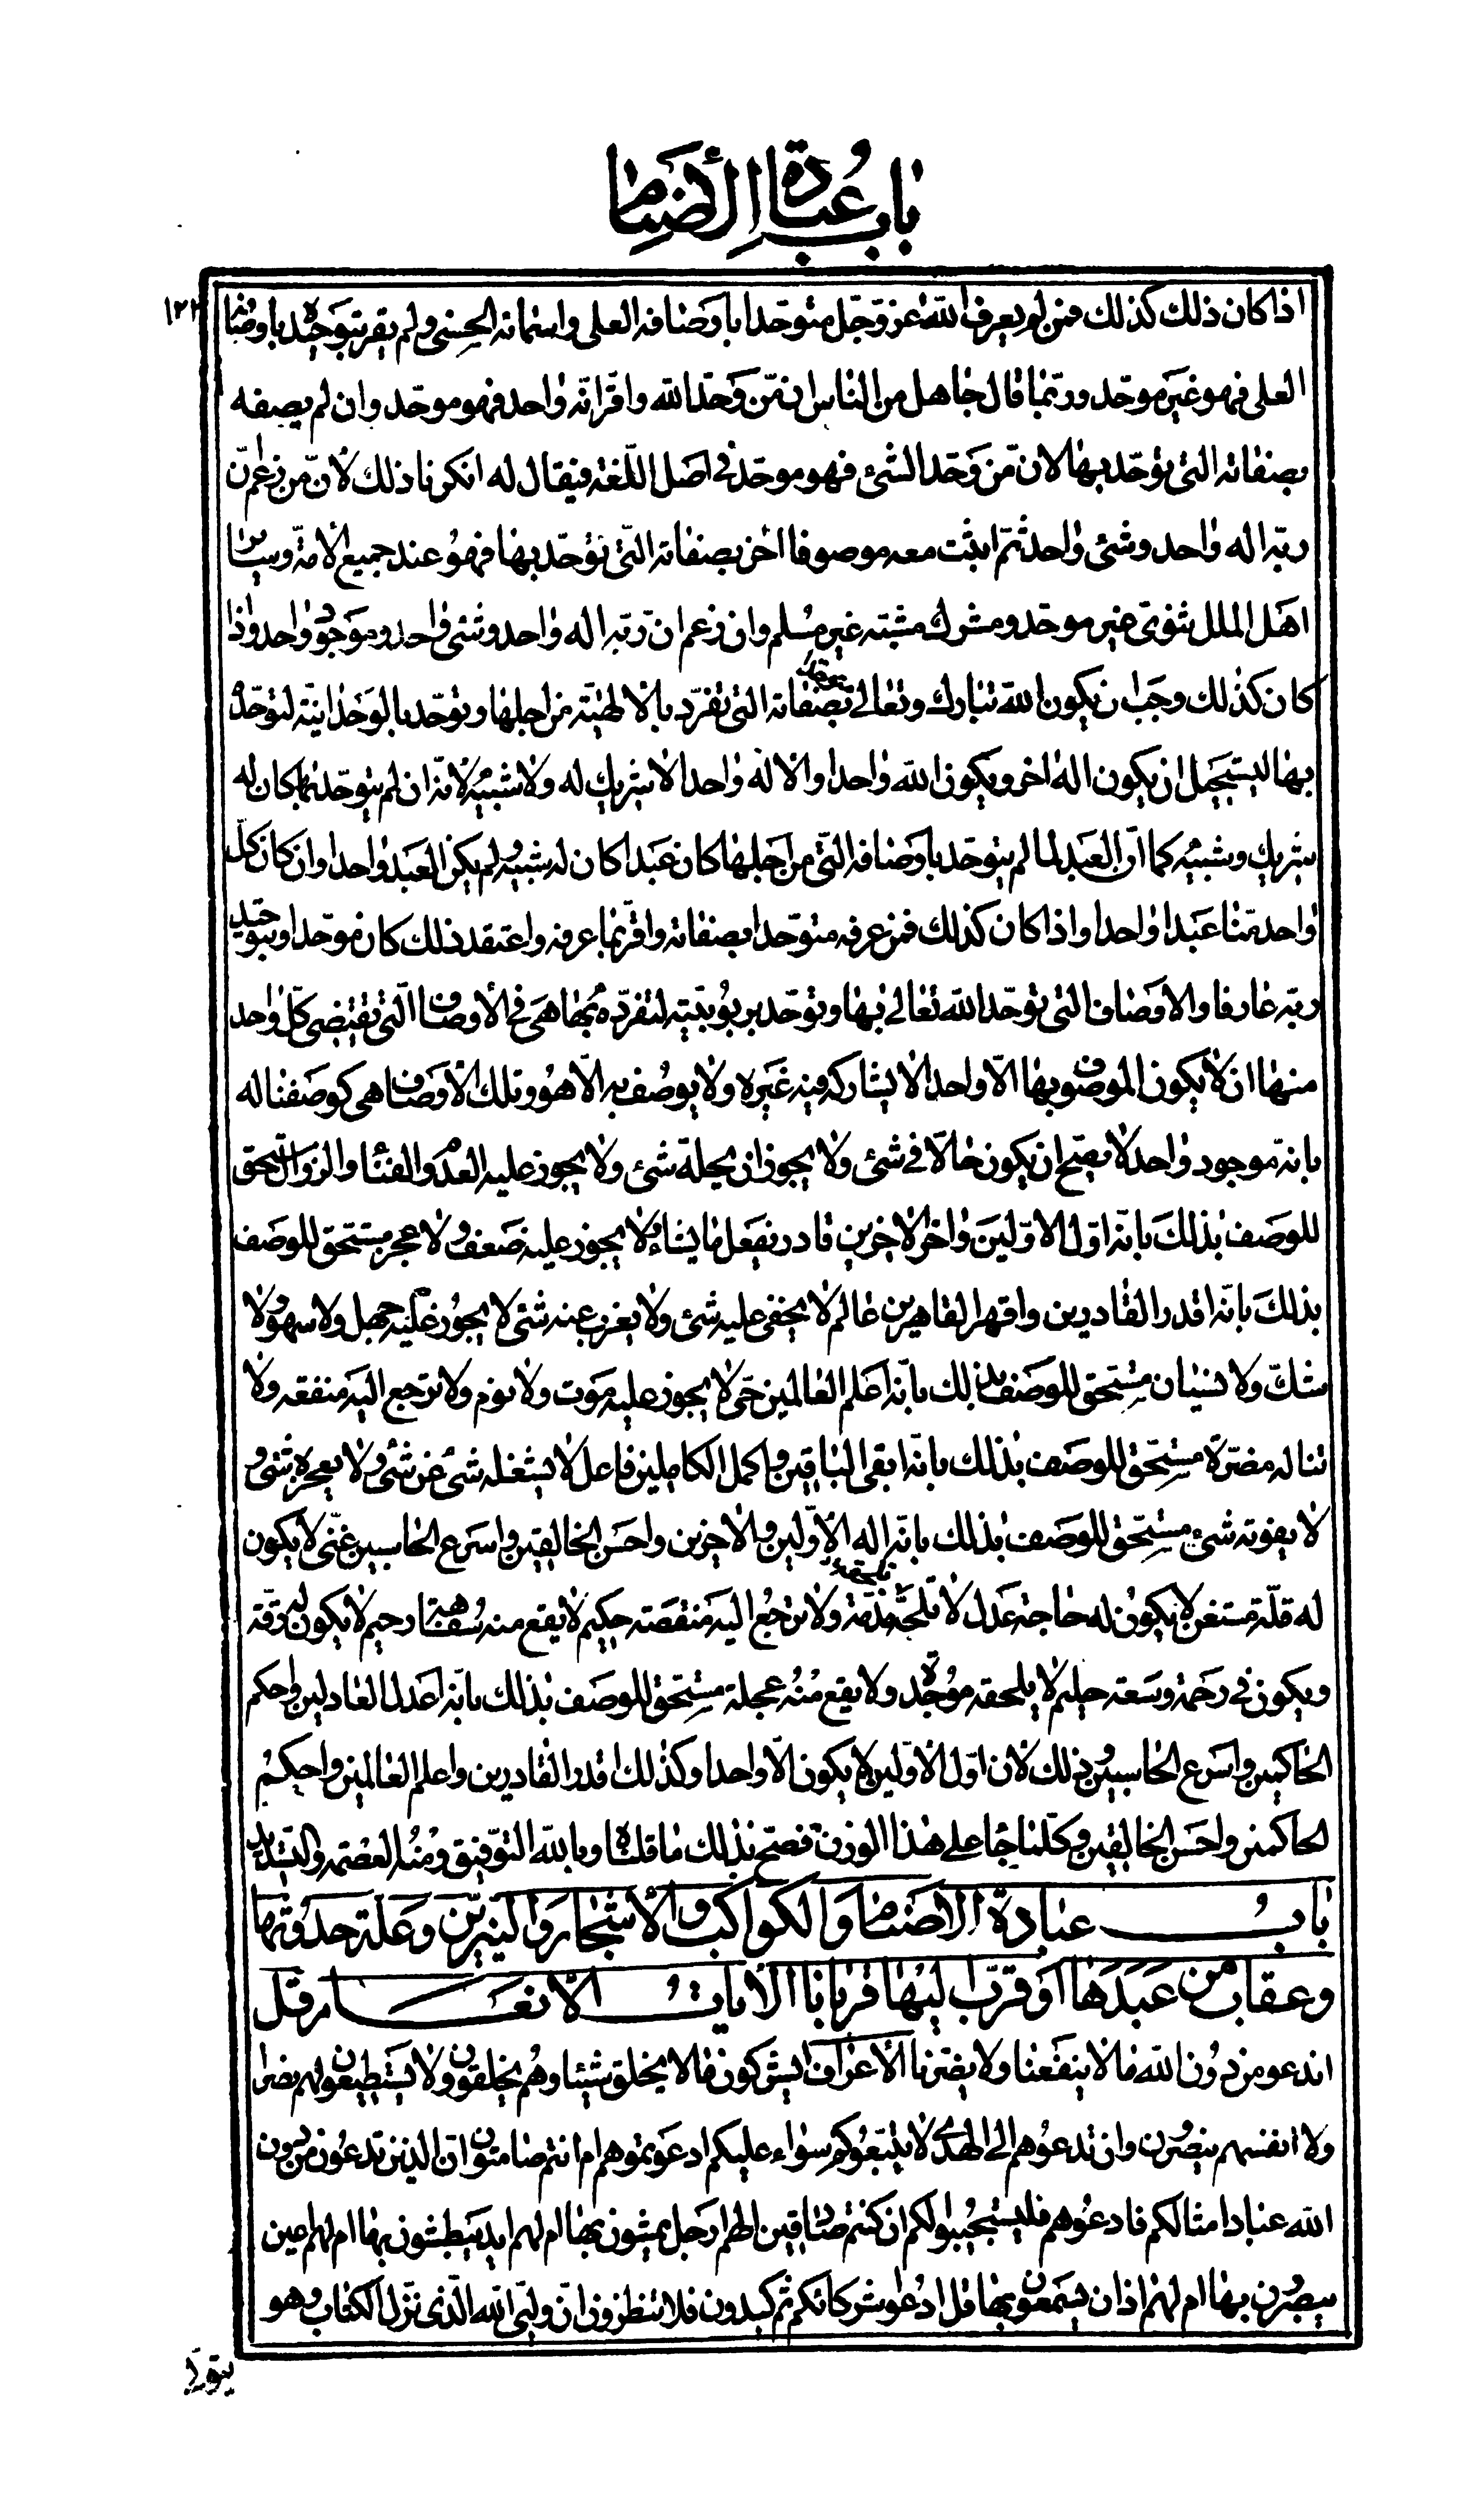 باب عبادة الأصنام
١٢٢
اذا كان ذلك كذلك فمن لم يعرف الله عز وجل متوحدا باوصافه العلى واسمائه الحسنى ولم يقر بتوحيده باوصافه
العلى فهو غير موحد وربما قال جاهل من الناس ان من وحد الله واقر انه واحد فهو موحد وان لم يصفه
بصفاته التى توحد بها لان من وحد الشئ فهو موحد فى اصل اللغة فيقال له انكرنا ذلك لان من زعم ان
ربه اله واحد وشئ واحد ثم اثبت معه موصوفا اخر بصفاته التى توحد بها فهو عند جميع الامة وسائر
اهل الملل ثنوى غير موحد ومشرك مشبه غير مسلم وان زعم ان ربه اله واحد وشئ واحد وموجود واحد واذا
كان كذلك وجب ان يكون الله تبارك وتعالى متوحدا بصفاته التى تفرد بالالهية من اجلها وتوحد بالوحدانية لتوحده
بها ليستحيل ان يكون اله اخر ويكون الله واحدا والاله واحدا لا شريك له ولا شبيه لانه ان لم يتوحد بها كان له
شريك وشبيه كما ان العبد لما لم يتوحد باوصافه التى من اجلها كان عبدا كان له شبيه ولم يكن العبد واحدا وان كان كل
واحد منا عبدا واحدا واذا كان كذلك فمن عرفه متوحدا بصفاته واقر بما عرفه واعتقد ذلك كان موحدا وبتوحيد
ربه عارفا والاوصاف التى توحد الله تعالى بها وتوحد بربوبيته لتفرده بها هى فى الاوصاف التى تقتضى كل واحد
منها ان لا يكون الموصوف بها الا واحدا لا يشاركه فيه غيره ولا يوصف به الا هو وتلك الاوصاف هى كوصفنا له
بانه موجود واحد لا يصح ان يكون حالا فى شئ ولا يجوز ان يحله شئ ولا يجوز عليه العدم والفناء والزوال مستحق
للوصف بذلك بانه اول الاولين واخر الاخرين قادر يفعل ما يشاء لا يجوز عليه ضعف ولا عجز مستحق للوصف
بذلك بانه اقدر القادرين واقهر القاهرين عالم لا يخفى عليه شئ ولا يعزب عنه شئ لا يجوز عليه جهل ولا سهو ولا
شك ولا نسيان مستحق للوصف بذلك بانه اعلم العالمين حى لا يجوز عليه موت ولا نوم ولا ترجع اليه منفعة ولا
تناله مضرة مستحق للوصف بذلك بانه ابقى الباقين واكمل الكاملين فاعل لا يشغله شئ عن شئ ولا يعجزه شئ و
لا يفوته شئ مستحق للوصف بذلك بانه اله الاولين والاخرين واحسن الخالقين واسرع الحاسبين غنى لا يكون
له قلة مستغن لا يكون له حاجة عدل لا تلحقه مذمة ولا ترجع اليه منقصة حكيم لا يقع منه سفاهة رحيم لا يكون له رقة
ويكون فى رحمة وسعة حليم لا يلحقه موجدة ولا يقع منه عجلة مستحق للوصف بذلك بانه اعدل العادلين واحكم
الحاكمين واسرع الحاسبين وذلك لان اول الاولين لا يكون الا واحدا وكذلك اقدر القادرين واعلم العالمين واحكم
الحاكمين واحسن الخالقين وكلما جاء على هذا الوزن فصح بذلك ما قلناه وبالله التوفيق ومنه العصمة والتسديد
باب عبادة الاصنام والكواكب والاشجار والنيرين وعلة حدوثها
وعقاب من عبدها او قرب اليها قربانا الايات الانعام قل
اندعو من دون الله ما لا ينفعنا ولا يضرنا الاعراف ايشركون ما لا يخلق شيئا وهم يخلقون ولا يستطيعون لهم نصرا
ولا انفسهم ينصرون وان تدعوهم الى الهدى لا يتبعوكم سواء عليكم ادعوتموهم ام انتم صامتون ان الذين تدعون من دون
الله عباد امثالكم فادعوهم فليستجيبوا لكم ان كنتم صادقين الهم ارجل يمشون بها ام لهم ايد يبطشون بها ام لهم اعين
يبصرون بها ام لهم اذان يسمعون بها قل ادعوا شركائكم ثم كيدون فلا تنظرون ان وليى الله الذى نزل الكتاب وهو
يتولى